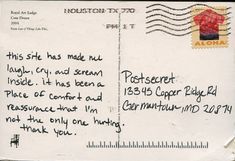 Royal Art Lodge
2004
HOUSTON TX 770
PM 1T
ALOHA
this site has made me
laugh, cry, and scream
inside. it has been a
place of comfort and
reassurance that I'm
not the only one hurting.
thank you.
Postsecret
13345 Copper Ridge Rd
Germantown, MD 20874